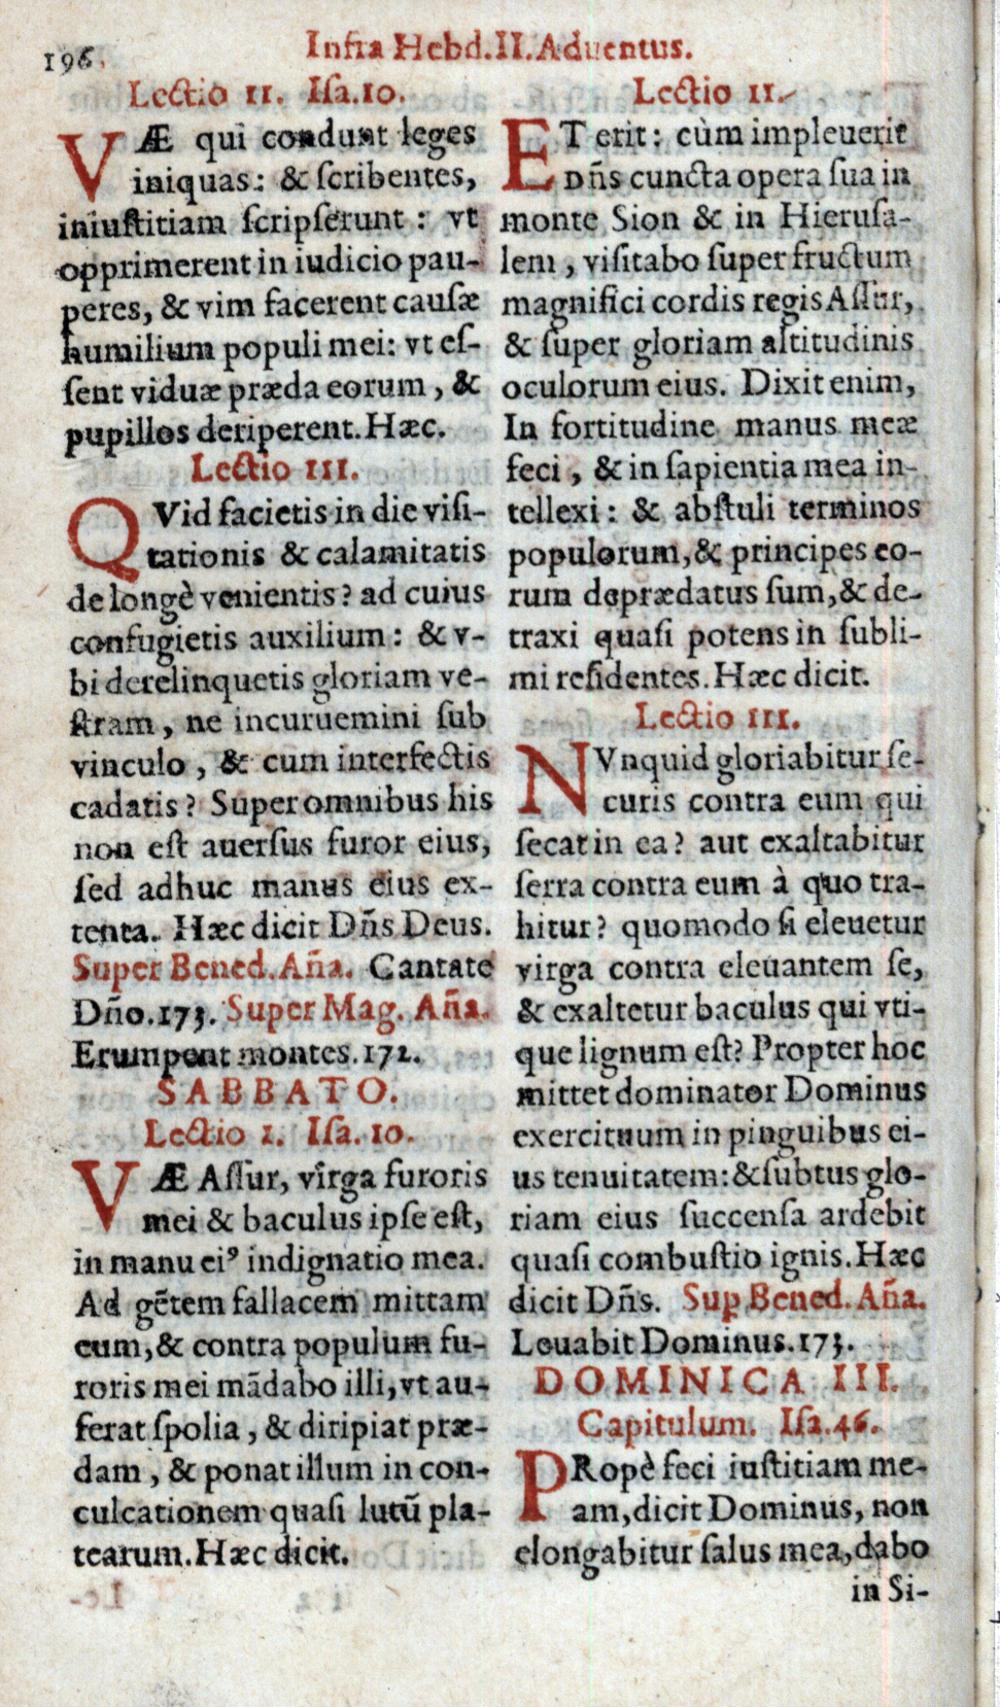 196.
Infra Hebd.II.Aduentus.
Lectio II. Isa.10.
VÆ qui condunt leges
iniquas: & scribentes,
iniustitiam scripserunt : vt
opprimerent in iudicio pau-
peres, & vim facerent causæ
humilium populi mei: vt es-
sent viduæ præda eorum, &
pupillos deriperent. Hæc.
Lectio III.
QVid facietis in die visi-
tationis & calamitatis
de longè venientis? ad cuius
confugietis auxilium: & v-
bi derelinquetis gloriam ve-
stram, ne incuruemini sub
vinculo, & cum interfectis
cadatis? Super omnibus his
non est auersus furor eius,
sed adhuc manus eius ex-
tenta. Hæc dicit Dñs Deus.
Super Bened. Aña. Cantate
Dño.173. Super Mag. Aña.
Erumpent montes.172.
SABBATO.
Lectio I. Isa.10.
VÆ Assur, virga furoris
mei & baculus ipse est,
in manu eiꝰ indignatio mea.
Ad gẽtem fallacem mittam
eum, & contra populum fu-
roris mei mãdabo illi, vt au-
ferat spolia, & diripiat præ-
dam, & ponat illum in con-
culcationem quasi lutũ pla-
tearum. Hæc dicit.
Lectio II.
ET erit: cùm impleuerit
Dñs cuncta opera sua in
monte Sion & in Hierusa-
lem, visitabo super fructum
magnifici cordis regis Assur,
& super gloriam altitudinis
oculorum eius. Dixit enim,
In fortitudine manus meæ
feci, & in sapientia mea in-
tellexi: & abstuli terminos
populorum, & principes eo-
rum deprædatus sum, & de-
traxi quasi potens in subli-
mi residentes. Hæc dicit.
Lectio III.
NVnquid gloriabitur se-
curis contra eum qui
secat in ea? aut exaltabitur
serra contra eum à quo tra-
hitur? quomodo si eleuetur
virga contra eleuantem se,
& exaltetur baculus qui vti-
que lignum est? Propter hoc
mittet dominator Dominus
exercituum in pinguibus ei-
us tenuitatem: & subtus glo-
riam eius succensa ardebit
quasi combustio ignis. Hæc
dicit Dñs. Suꝑ Bened. Aña.
Leuabit Dominus.173.
DOMINICA III.
Capitulum. Isa.46.
PRopè feci iustitiam me-
am, dicit Dominus, non
elongabitur salus mea, dabo
in Si-